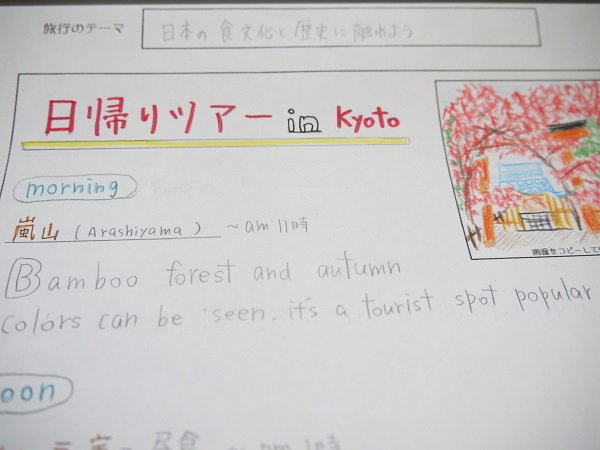 旅行のテーマ 日本の食文化と歴史に触れよう
日帰りツアー in Kyoto
morning
嵐山 (Arashiyama) ~am 11時
Bamboo forest and autumn
colors can be seen. it's a tourist spot popular
画像をコピーして
oon
昼食 ~pm 1時